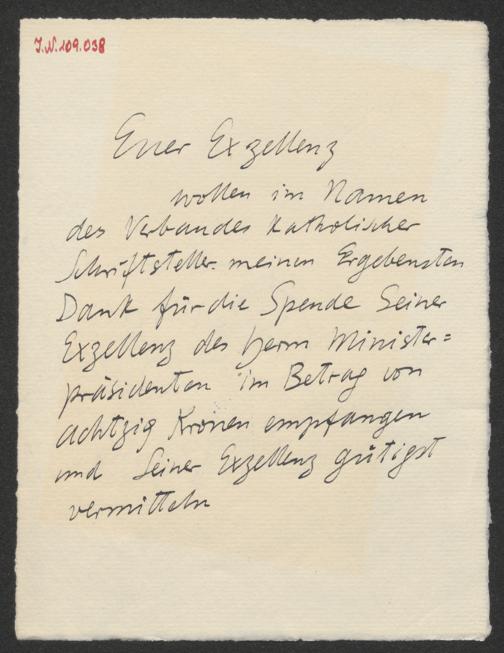 J.N. 109.038
Euer Exzellenz
wollen im Namen
des Verbandes katholischer
Schriftsteller meinen Ergebensten
Dank für die Spende Seiner
Exzellenz des Herrn Minister=
präsidenten im Betrag von
achtzig Kronen empfangen
und Seiner Exzellenz gütigst
vermitteln